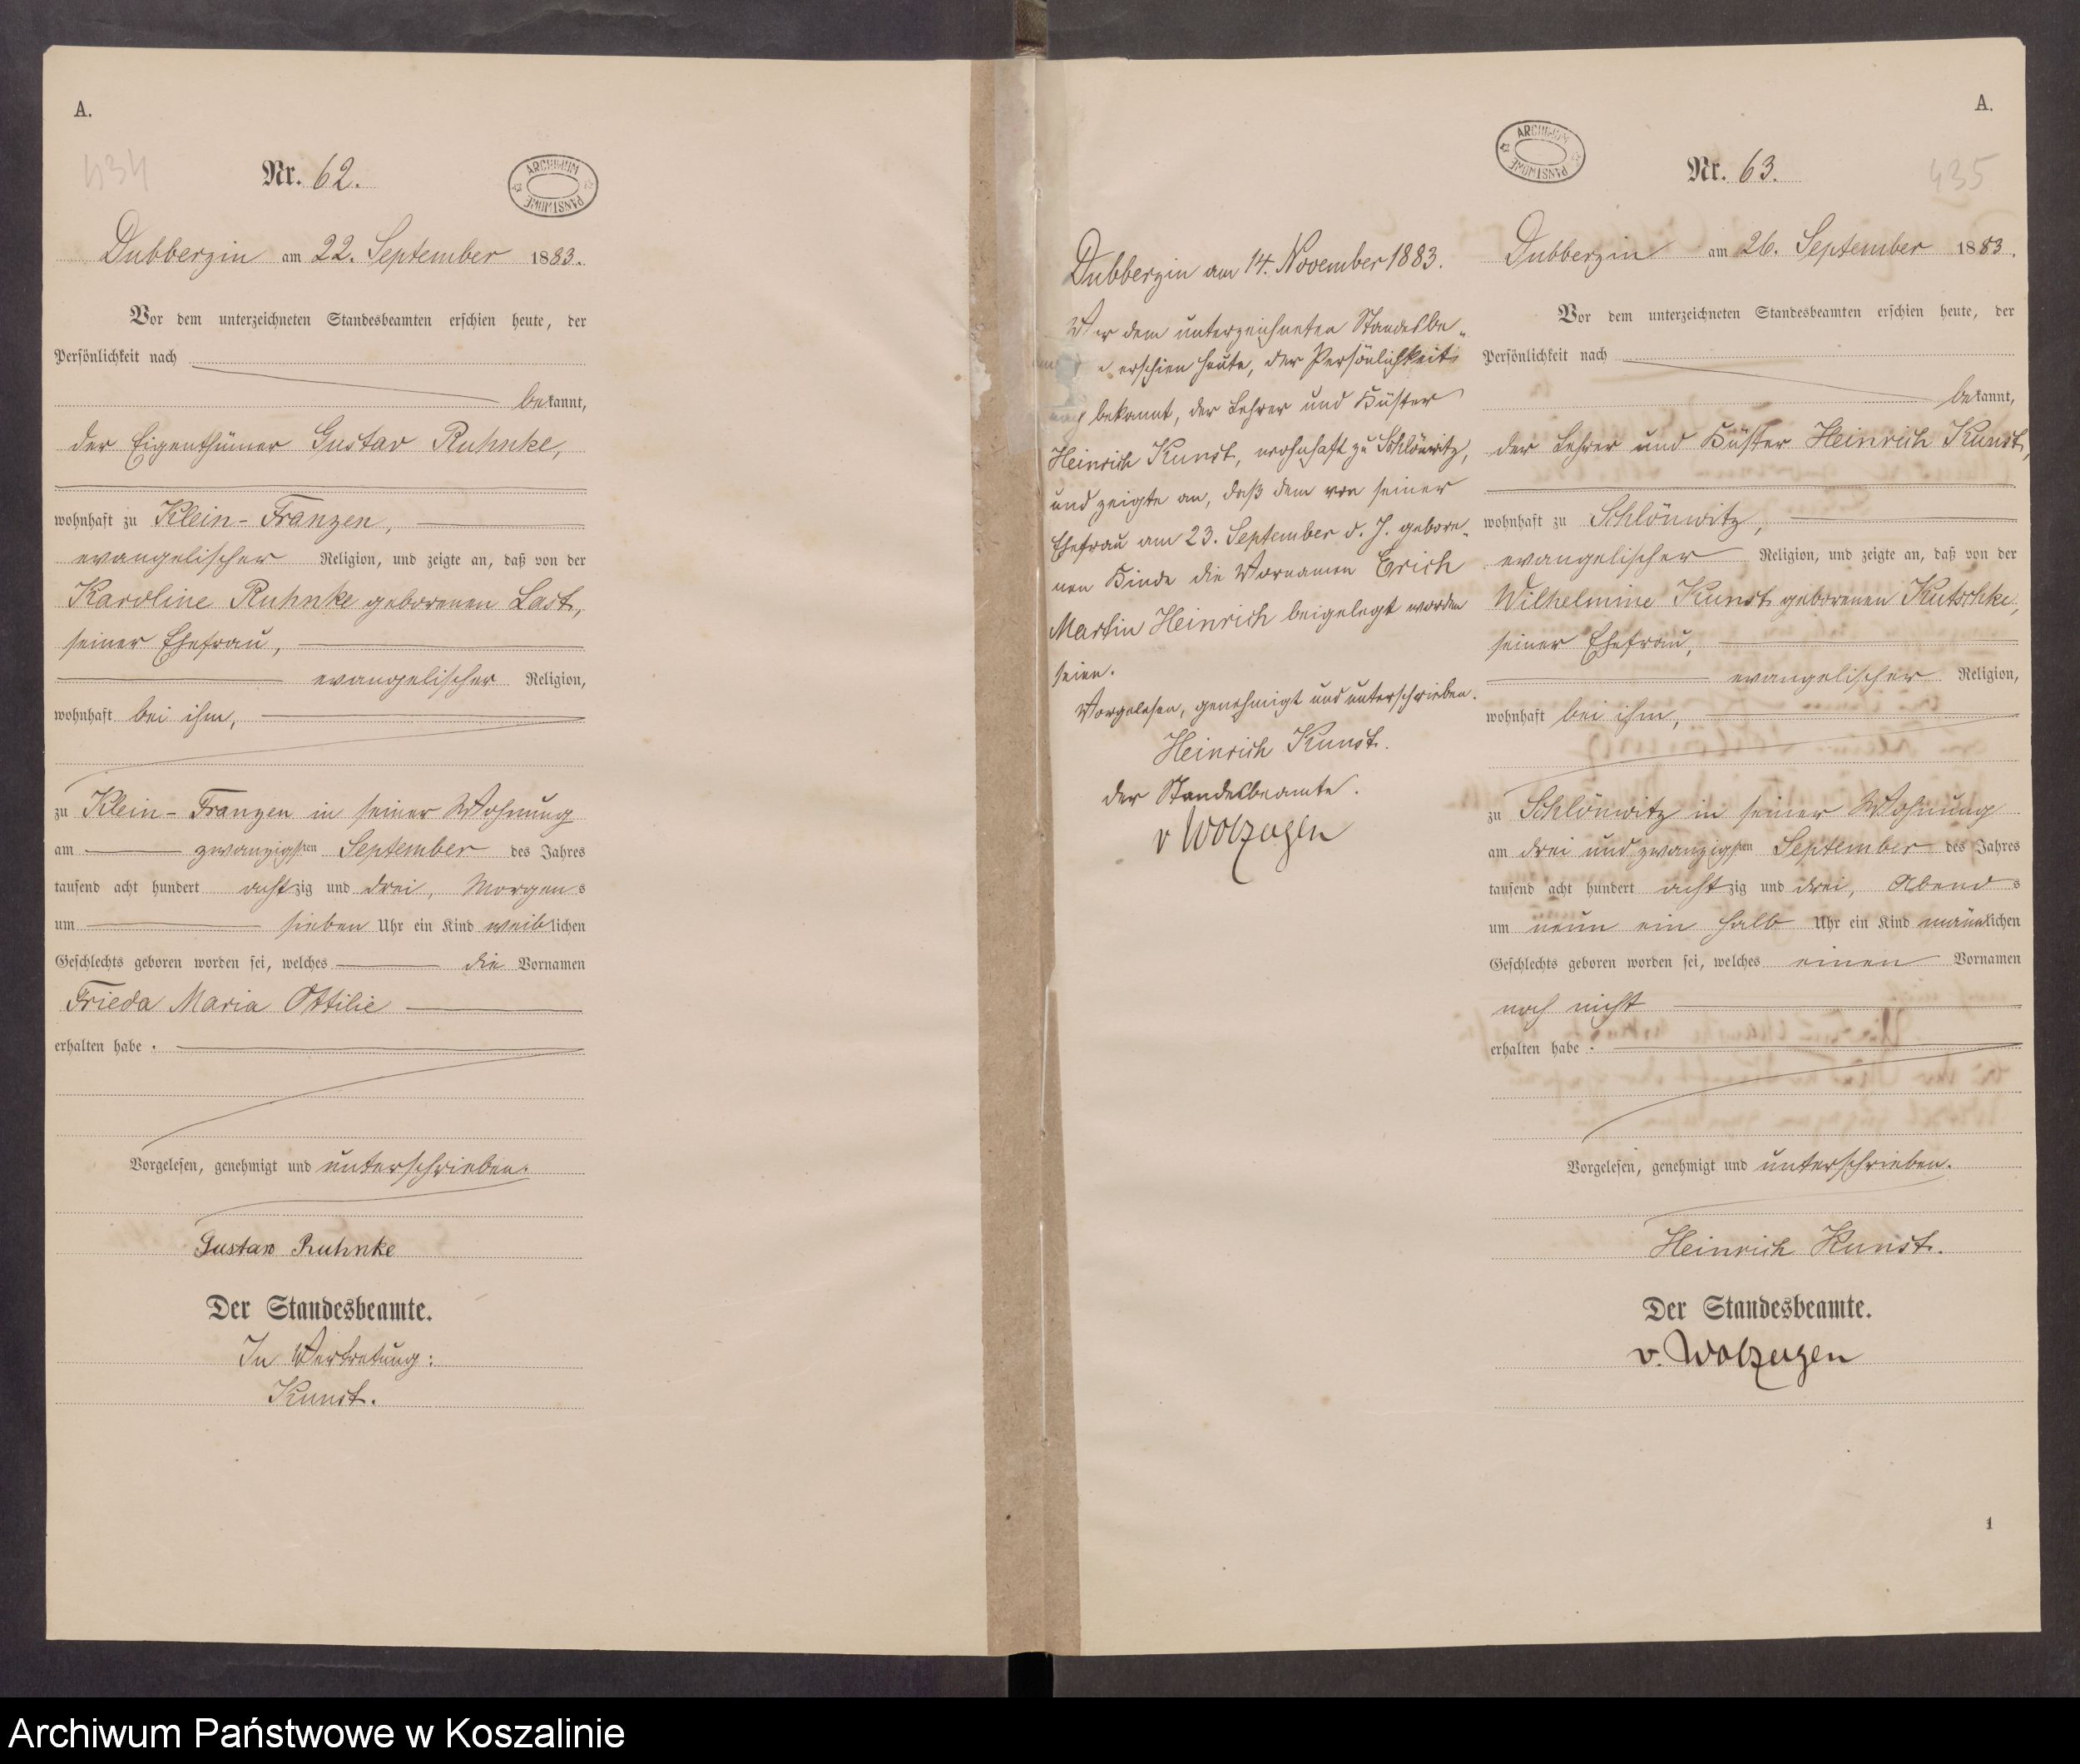 A.
434
Nr. 62.
ARCHIWUM PAŃSTWOWE
Dubberzin am 22. September 1883.
Vor dem unterzeichneten Standesbeamten erschien heute, der
Persönlichkeit nach
bekannt,
der Eigenthümer Gustav Ruhnke,
wohnhaft zu Klein-Franzen,
evangelischer Religion, und zeigte an, daß von der
Karoline Ruhnke geborenen Last,
seiner Ehefrau,
evangelischer Religion,
wohnhaft bei ihm,
zu Klein-Franzen in seiner Wohnung
am zwanzigsten September des Jahres
tausend acht hundert achtzig und drei, Morgens
um sieben Uhr ein Kind weiblichen
Geschlechts geboren worden sei, welches die Vornamen
Frieda Maria Ottilie
erhalten habe.
Vorgelesen, genehmigt und unterschrieben.
Gustav Ruhnke
Der Standesbeamte.
In Vertretung:
Kunst.
Dubberzin am 14. November 1883.
Vor dem unterzeichneten Standesbe-
erschien heute, der Persönlichkeit
nach bekannt, der Lehrer und Küster
Heinrich Kunst, wohnhaft zu Schlönwitz,
und zeigte an, daß dem von seiner
Ehefrau am 23. September d. J. gebore-
nen Kinde die Vornamen Erich
Martin Heinrich beigelegt worden
seien.
Vorgelesen, genehmigt und unterschrieben.
Heinrich Kunst.
der Standesbeamte.
v Wolzogen
A.
435
ARCHIWUM PAŃSTWOWE
Nr. 63.
Dubberzin am 26. September 1883.
Vor dem unterzeichneten Standesbeamten erschien heute, der
Persönlichkeit nach
bekannt,
der Lehrer und Küster Heinrich Kunst,
wohnhaft zu Schlönwitz,
evangelischer Religion, und zeigte an, daß von der
Wilhelmine Kunst geborenen Kutschke,
seiner Ehefrau,
evangelischer Religion,
wohnhaft bei ihm,
zu Schlönwitz in seiner Wohnung
am drei und zwanzigsten September des Jahres
tausend acht hundert achtzig und drei, Abends
um neun ein halb Uhr ein Kind männlichen
Geschlechts geboren worden sei, welches einen Vornamen
noch nicht
erhalten habe.
Vorgelesen, genehmigt und unterschrieben.
Heinrich Kunst.
Der Standesbeamte.
v. Wolzogen
1
Archiwum Państwowe w Koszalinie